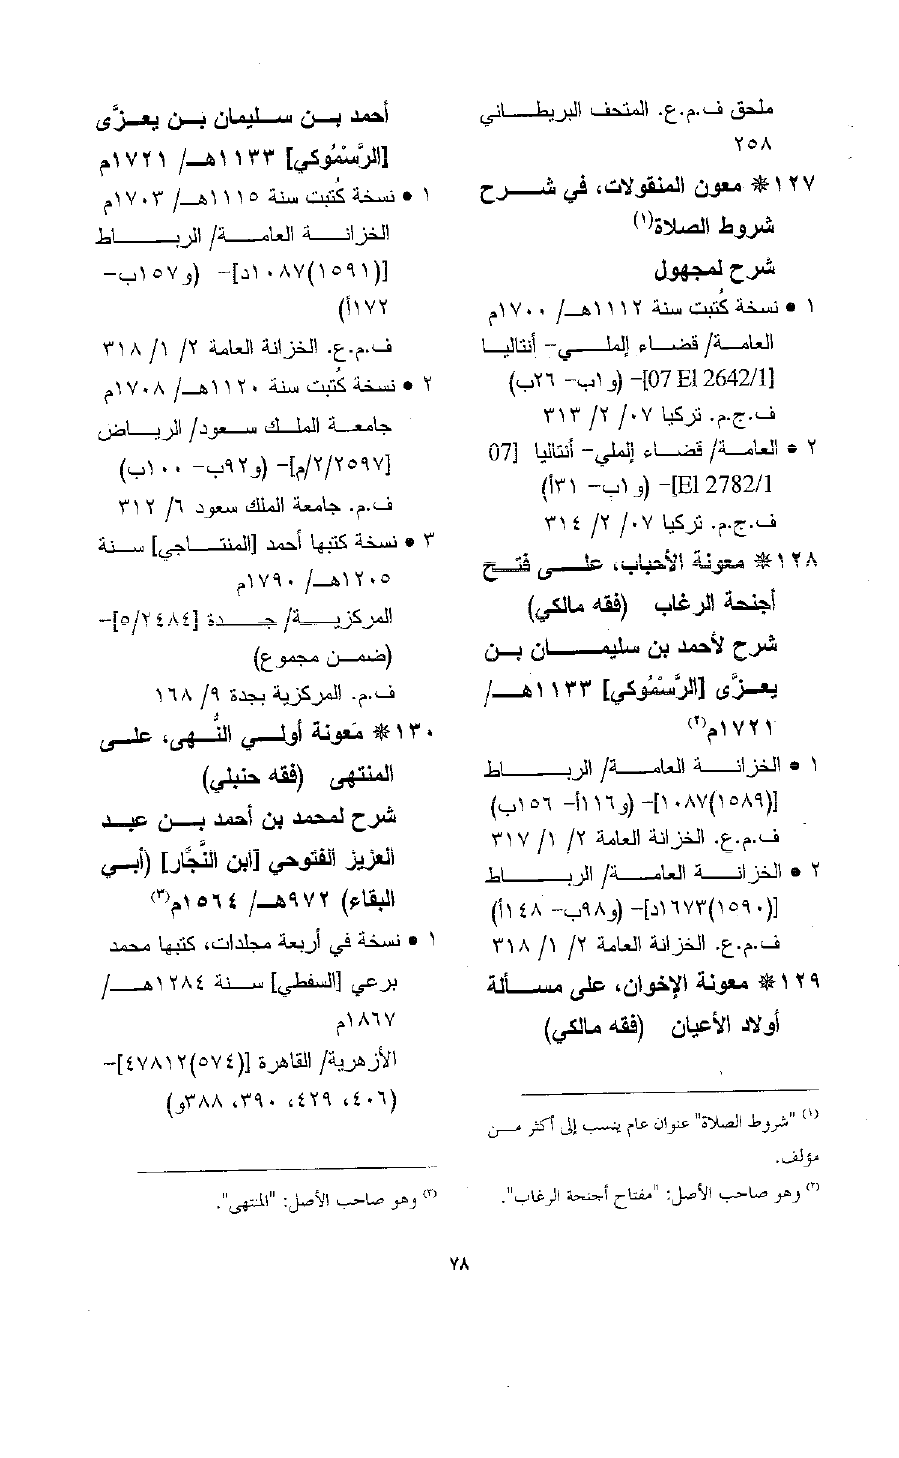 ملحق ف.م.ع. المتحف البريطاني
٢٥٨
١٢٧* معون المنقولات، في شرح
شروط الصلاة(١)
شرح لمجهول
١ • نسخة كُتبت سنة ١١١٢هـ/ ١٧٠٠م
العامة/ قضاء إلملي- أنتاليا
[07 El 2642/1]- (و١ب- ٢٦ب)
ف.ج.م. تركيا ٠٧/ ٢/ ٣١٣
٢ • العامة/ قضاء إلملي- أنتاليا [07
El 2782/1]- (و١ب- ٣١أ)
ف.ج.م. تركيا ٠٧/ ٢/ ٣١٤
١٢٨* معونة الأحباب، على فتح
أجنحة الرغاب (فقه مالكي)
شرح لأحمد بن سليمان بن
يعزَّى [الرَّسْمُوكي] ١١٣٣هـ/
١٧٢١م(٢)
١ • الخزانة العامة/ الرباط
[(١٥٨٩)١٠٨٧]- (و١١٦أ- ١٥٦ب)
ف.م.ع. الخزانة العامة ٢/ ١/ ٣١٧
٢ • الخزانة العامة/ الرباط
[(١٥٩٠)١٦٧٣د]- (و٩٨ب- ١٤٨أ)
ف.م.ع. الخزانة العامة ٢/ ١/ ٣١٨
١٢٩* معونة الإخوان، على مسألة
أولاد الأعيان (فقه مالكي)
(١) "شروط الصلاة" عنوان عام ينسب إلى أكثر من
مؤلف.
(٢) وهو صاحب الأصل: "مفتاح أجنحة الرغاب".
أحمد بن سليمان بن يعزَّى
[الرَّسْمُوكي] ١١٣٣هـ/ ١٧٢١م
١ • نسخة كُتبت سنة ١١١٥هـ/ ١٧٠٣م
الخزانة العامة/ الرباط
[(١٥٩١)١٠٨٧د]- (و١٥٧ب-
١٧٢أ)
ف.م.ع. الخزانة العامة ٢/ ١/ ٣١٨
٢ • نسخة كُتبت سنة ١١٢٠هـ/ ١٧٠٨م
جامعة الملك سعود/ الرياض
[٢/٢٥٩٧/م]- (و٩٢ب- ١٠٠ب)
ف.م. جامعة الملك سعود ٦/ ٣١٢
٣ • نسخة كتبها أحمد [المنتاجي] سنة
١٢٠٥هـ/ ١٧٩٠م
المركزية/ جدة [٥/٢٤٨٤]-
(ضمن مجموع)
ف.م. المركزية بجدة ٩/ ١٦٨
١٣٠* مَعونة أولي النُّهى، على
المنتهى (فقه حنبلي)
شرح لمحمد بن أحمد بن عبد
العزيز الفتوحي [ابن النَّجَّار] (أبي
البقاء) ٩٧٢هـ/ ١٥٦٤م(٣)
١ • نسخة في أربعة مجلدات، كتبها محمد
برعي [السفطي] سنة ١٢٨٤هـ/
١٨٦٧م
الأزهرية/ القاهرة [(٥٧٤)٤٧٨١٢]-
(٤٠٦، ٤٢٩، ٣٩٠، ٣٨٨و)
(٣) وهو صاحب الأصل: "المنتهى".
٧٨